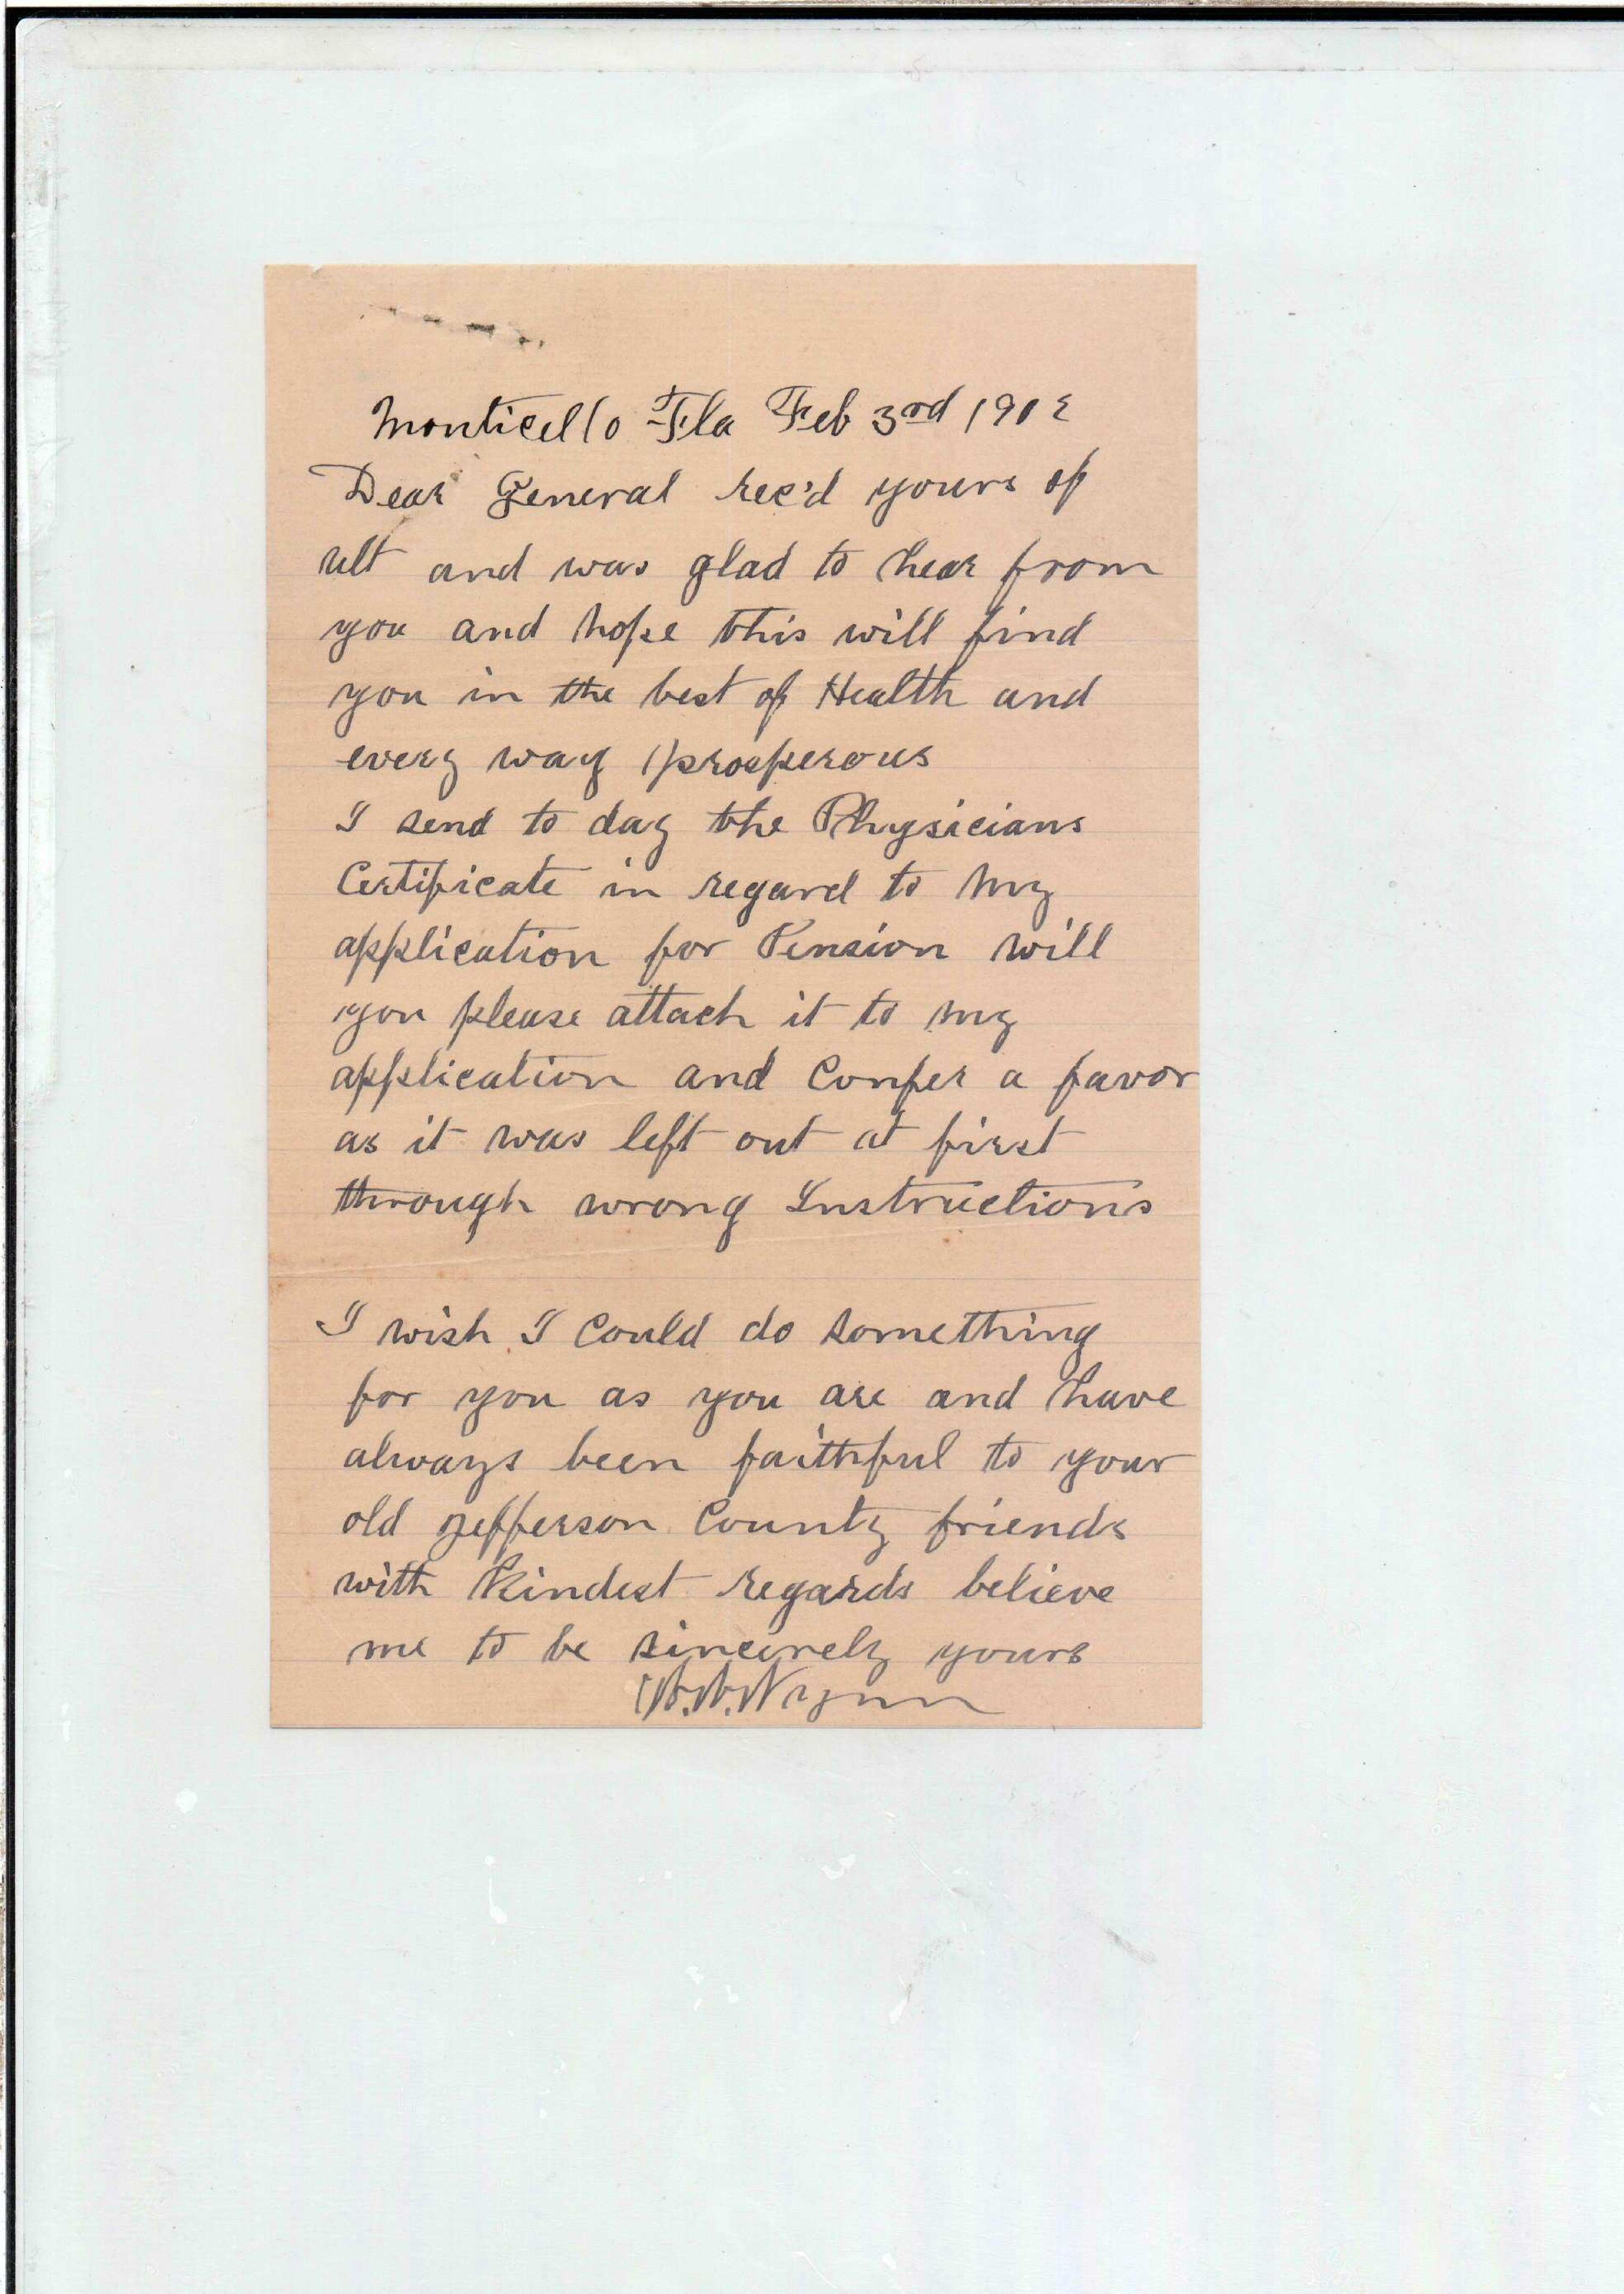 Monticello Fla Feb 3rd 1902
Dear General rec'd yours of
ult and was glad to hear from
you and hope this will find
you in the best of Health and
every way prosperous
I send to day the Physicians
Certificate in regard to my
application for Pension will
you please attach it to my
application and Confer a favor
as it was left out at first
through wrong Instructions
I wish I Could do something
for you as you are and have
always been faithful to your
old Jefferson County friends
with Kindest regards believe
me to be sincerely yours